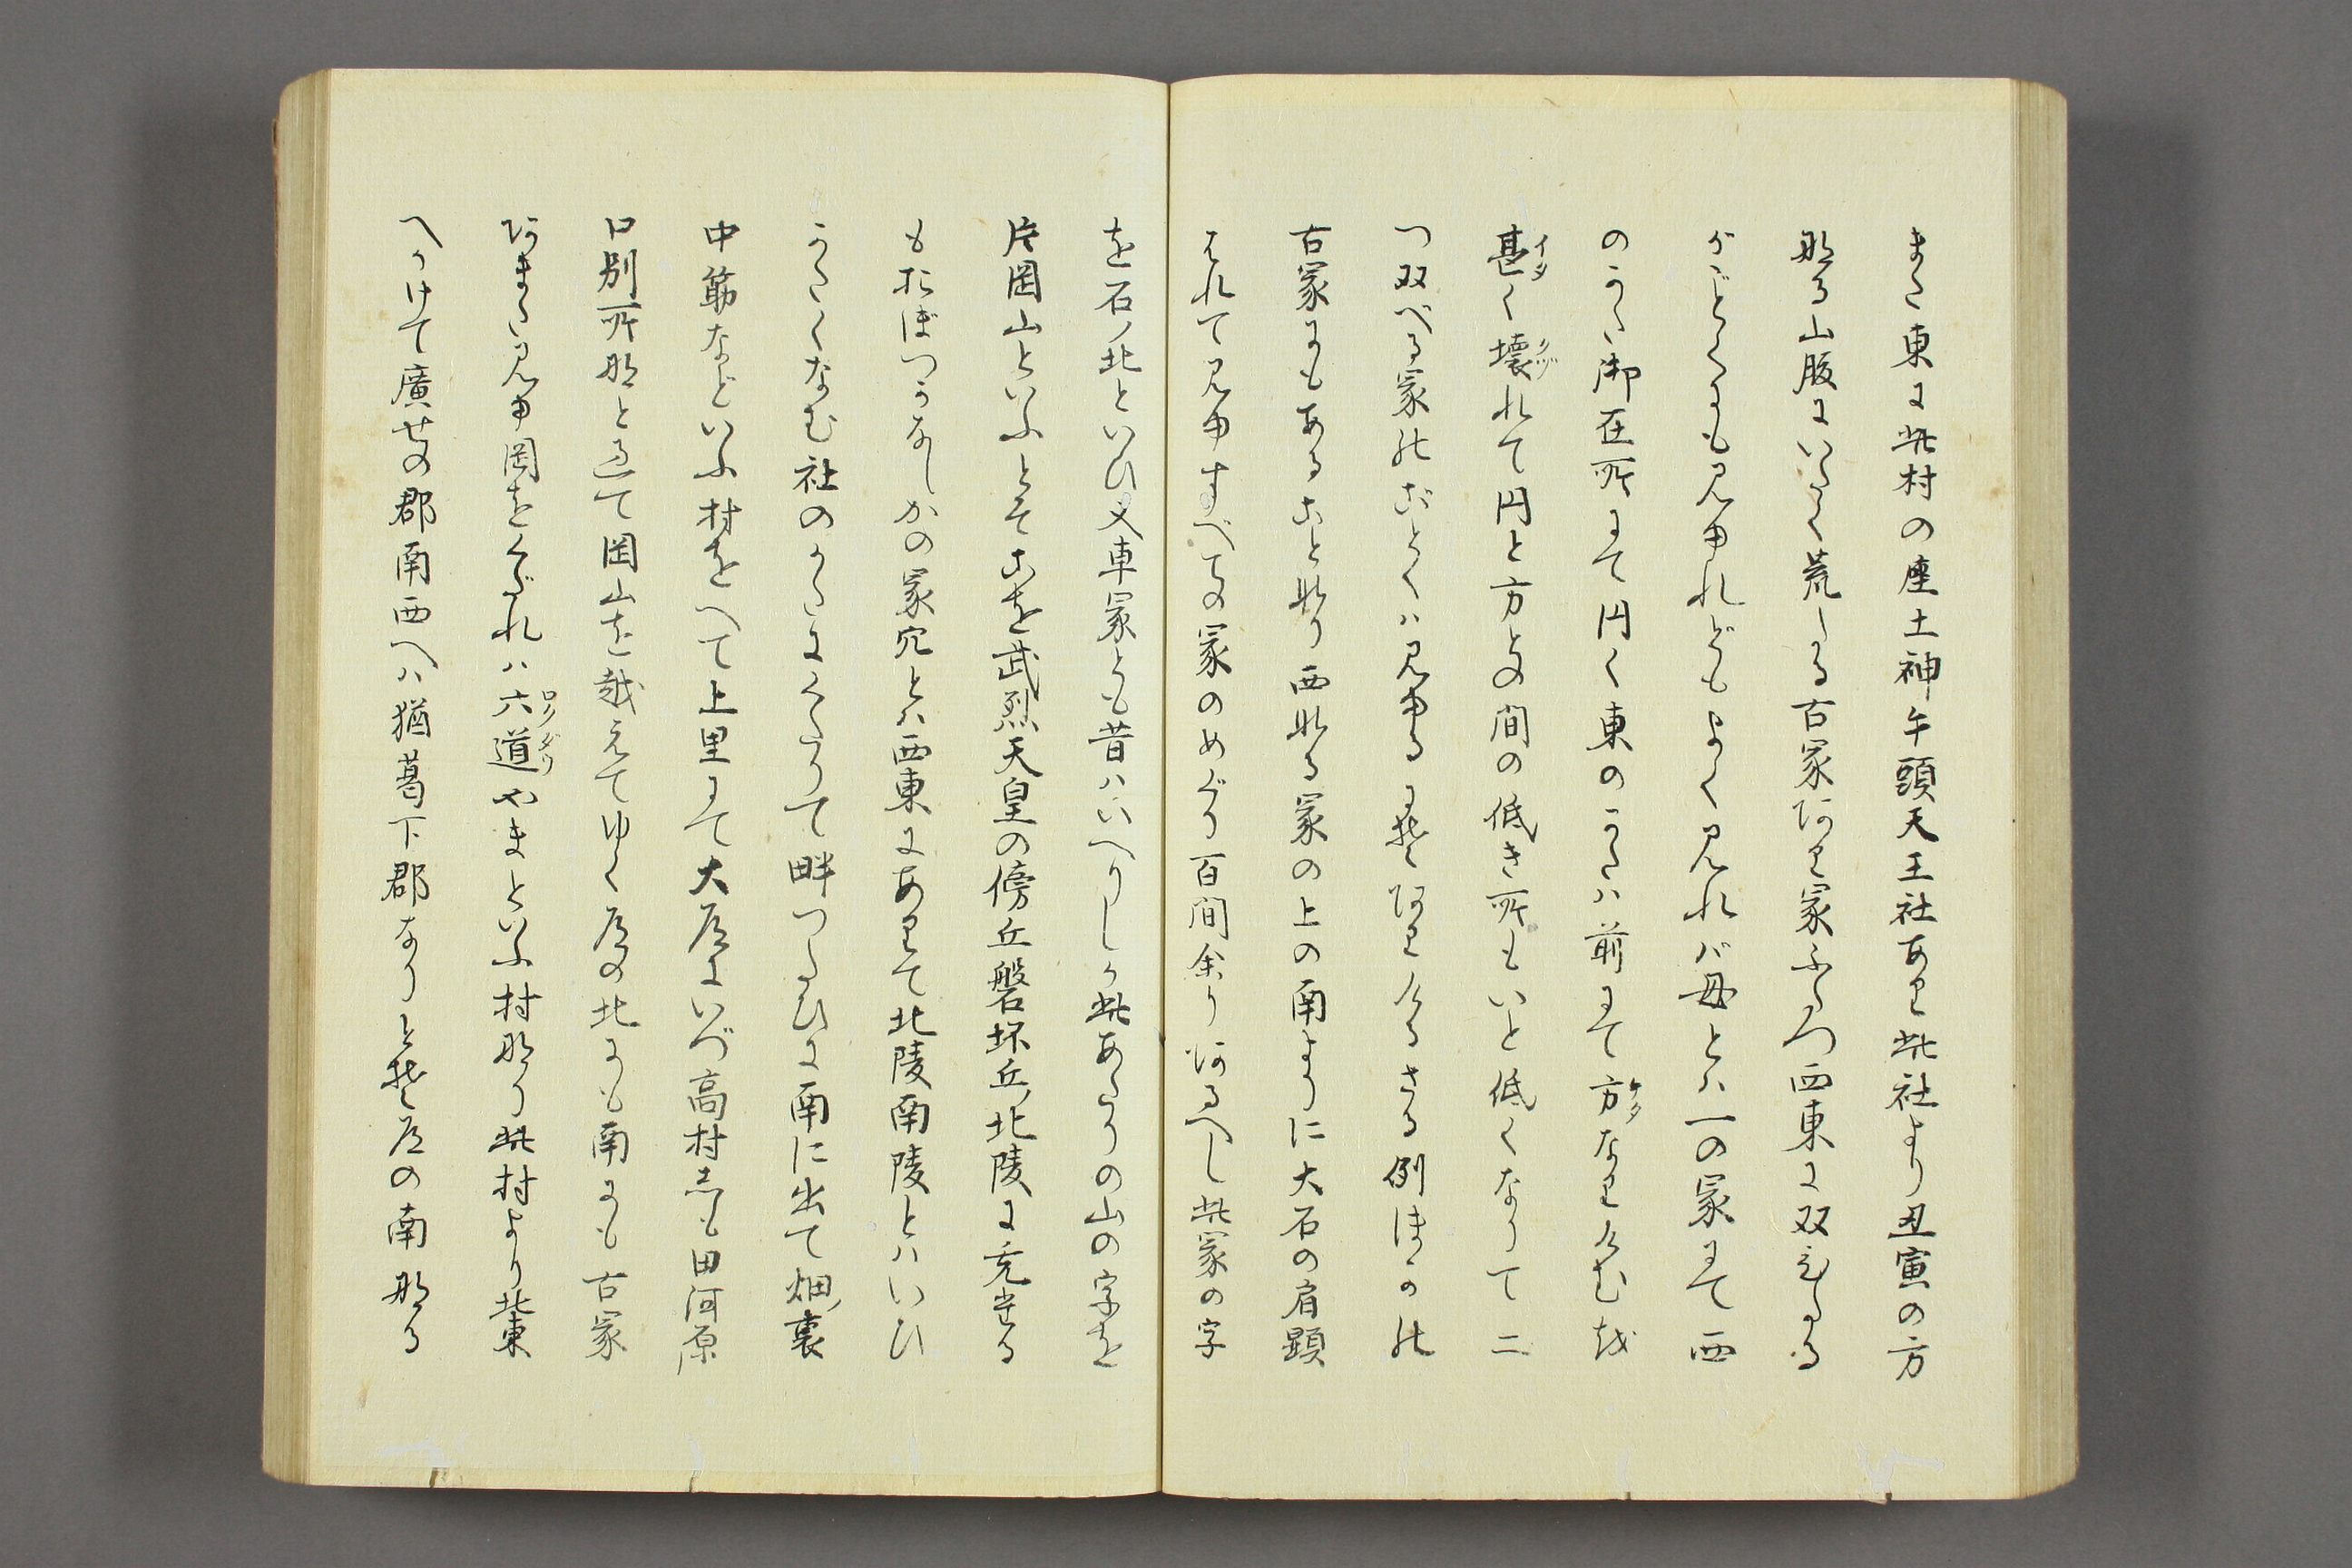 また東に此村の座土神牛頭天王社あり此社より丑寅の方
なる山腹にいたく荒たる古冢あり冢ふたつ西東に双びたる
がごとくにも見ゆれどもよく見れバ毋とハ一の冢にて西
のかた御在所にて円く東のかたハ前にて方ケタなりけむを
甚イタく壊クヅれて円と方との間の低き所もいと低くなりて二
つ双べる冢のごとくハ見ゆるにぞありけるさる例ほかの
古冢にもあることなり西なる冢の上の南よりに大石の肩顕
はれて見ゆすべての冢のめぐり百間余りあるへし此冢の字
を石ノ北といひ又車冢とも昔ハいへりしか此あたりの山の字を
片岡山といふとてこを武烈天皇の傍丘磐坏丘ノ北陵に充奉る
もおぼつかなしかの冢穴とハ西東にありて北陵南陵とハいひ
かたくなむ社のかたにくたりて畔つたひに南に出て畑ノ裏
中筋などいふ村をへて上里にて大道にいづ高村志も田河原
口別所など過て岡山を越えてゆく道の北にも南にも古冢
あまた見ゆ岡をくだれハ六道ロクダウやまといふ村なり此村より北東
へかけて廣せの郡南西へハ猶葛下郡なりとぞ道の南なる